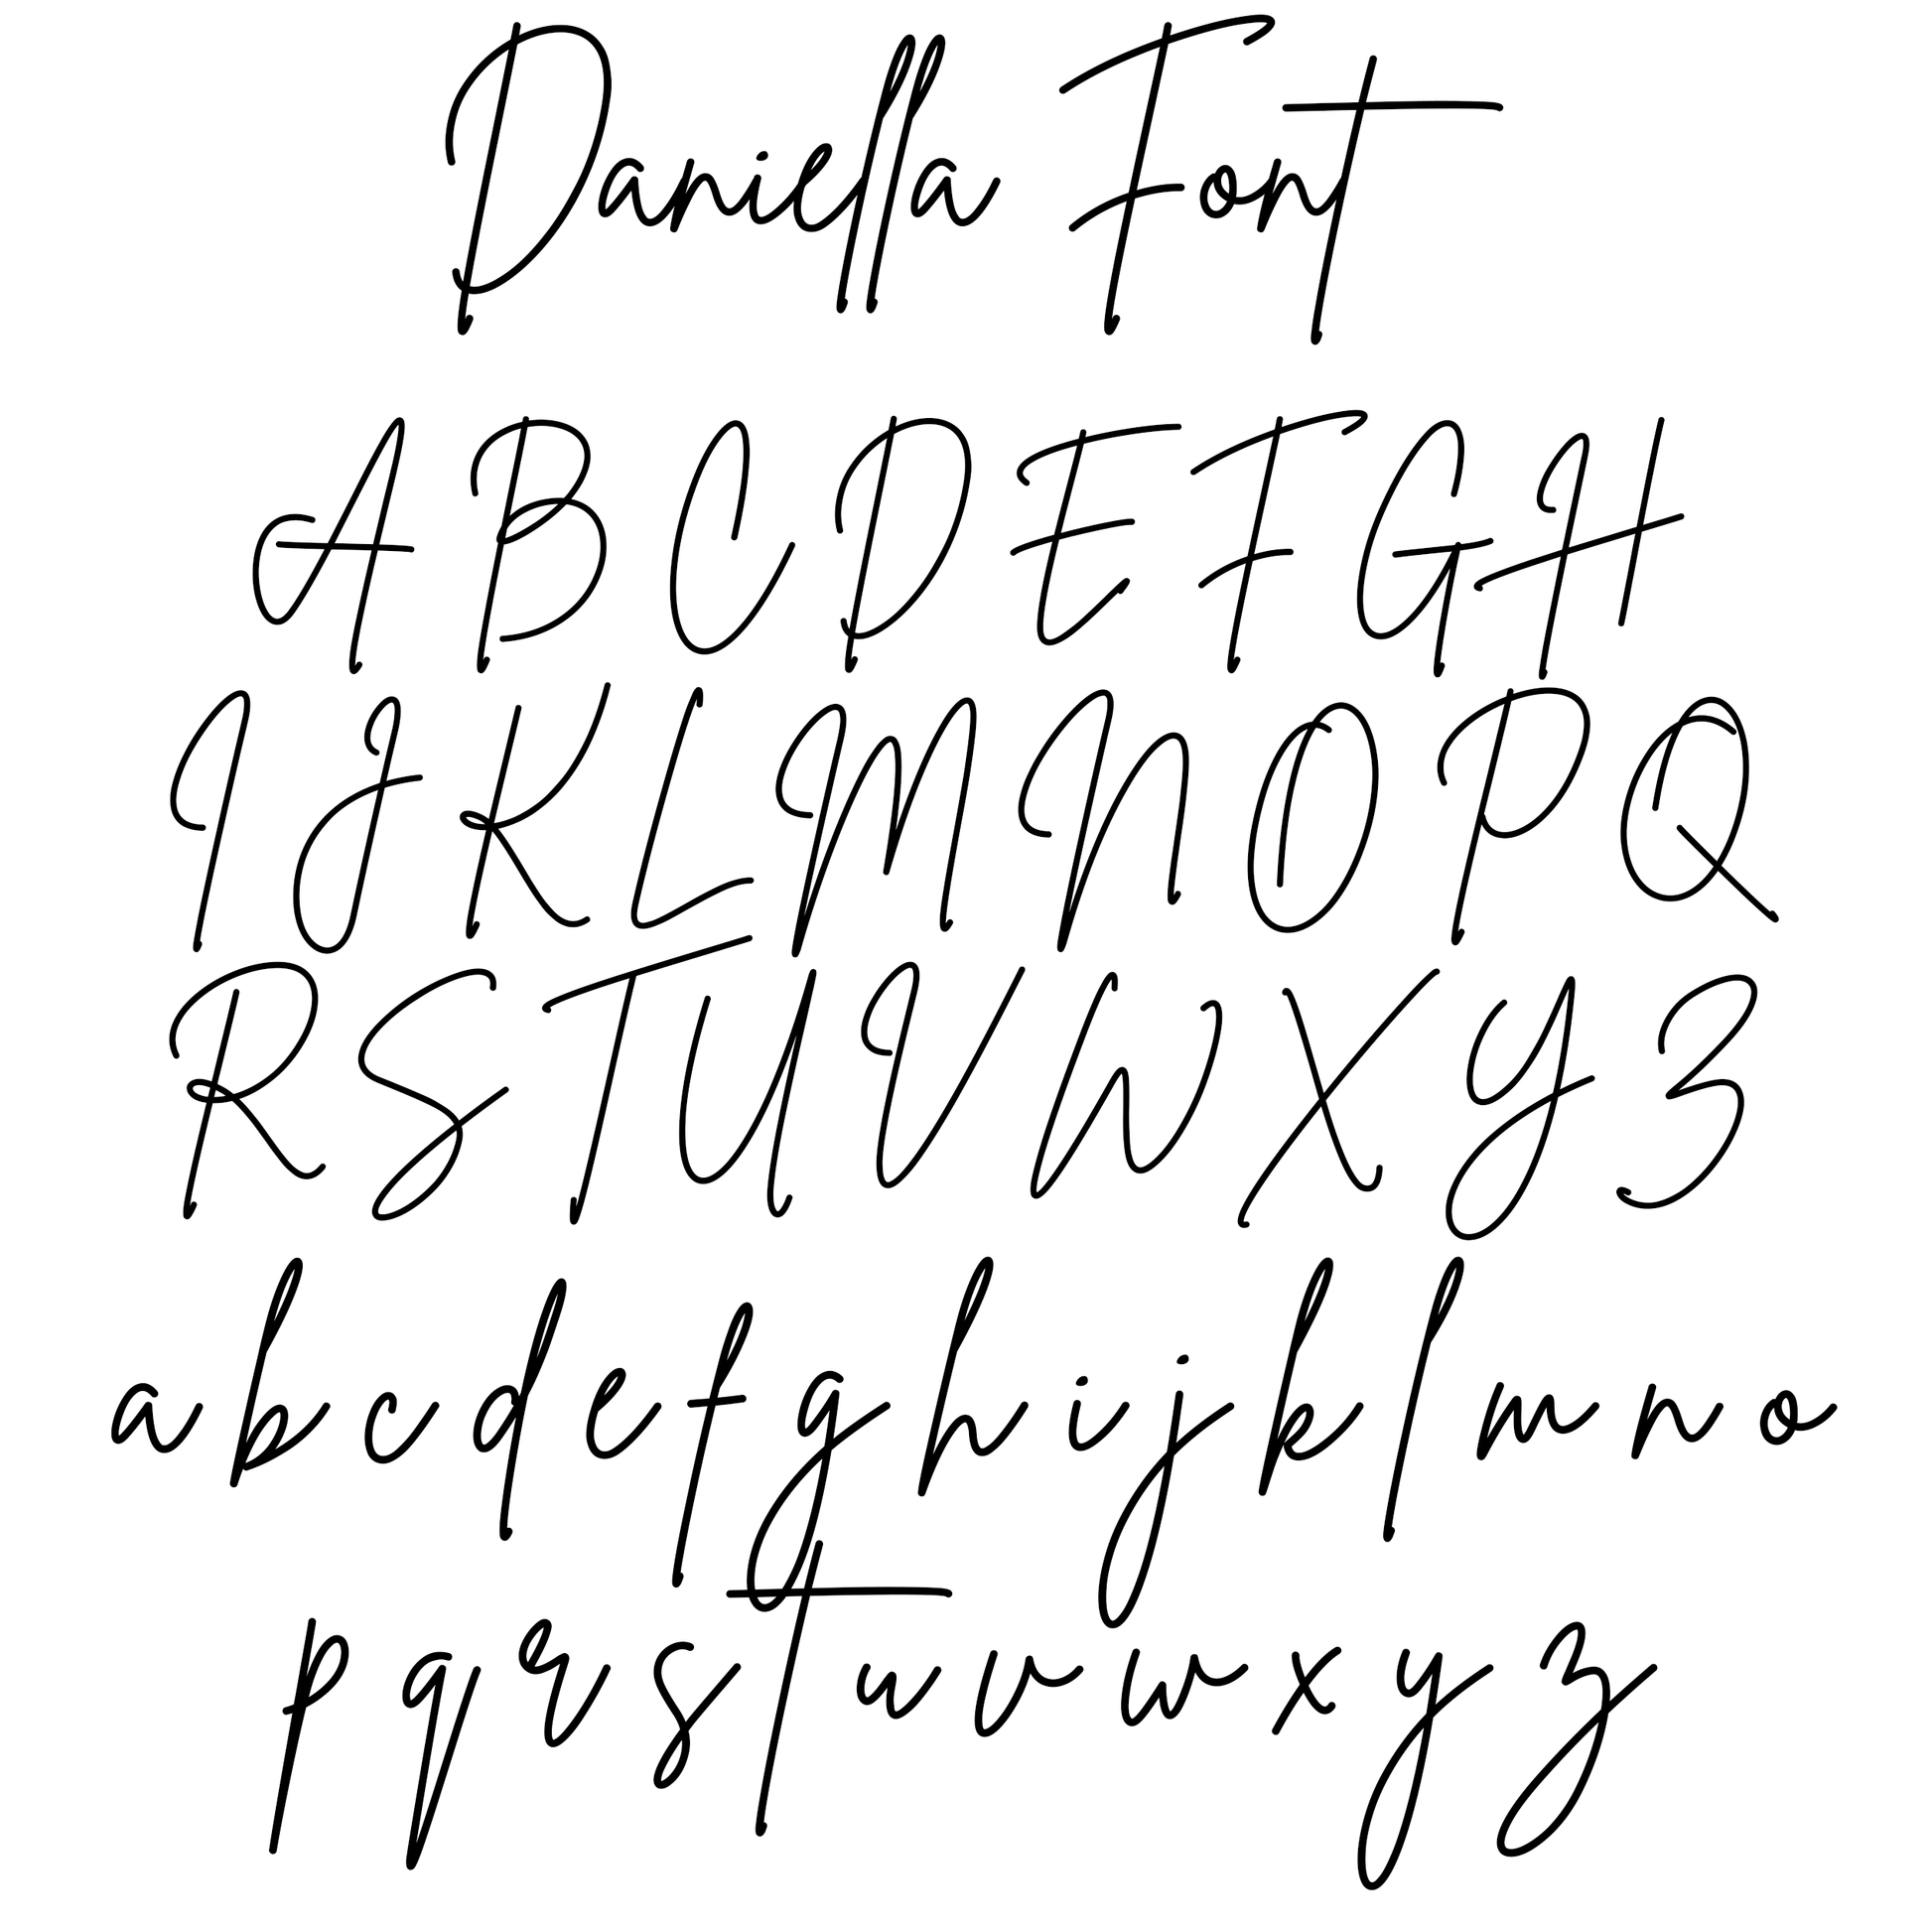 Daniella Font
A B C D E F G H
I J K L M N O P Q
R S T U V W X Y Z
a b c d e f g h i j k l m n o
p q r s t u v w x y z